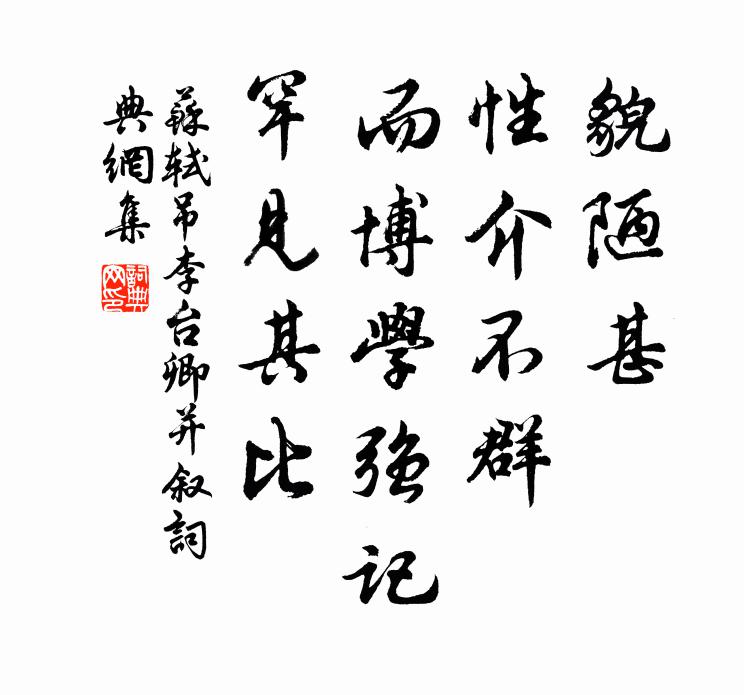 貌陋甚
性介不群
而博學強記
罕見其比
蘇軾吊李台卿并叙詞
典網集
詞典
网印